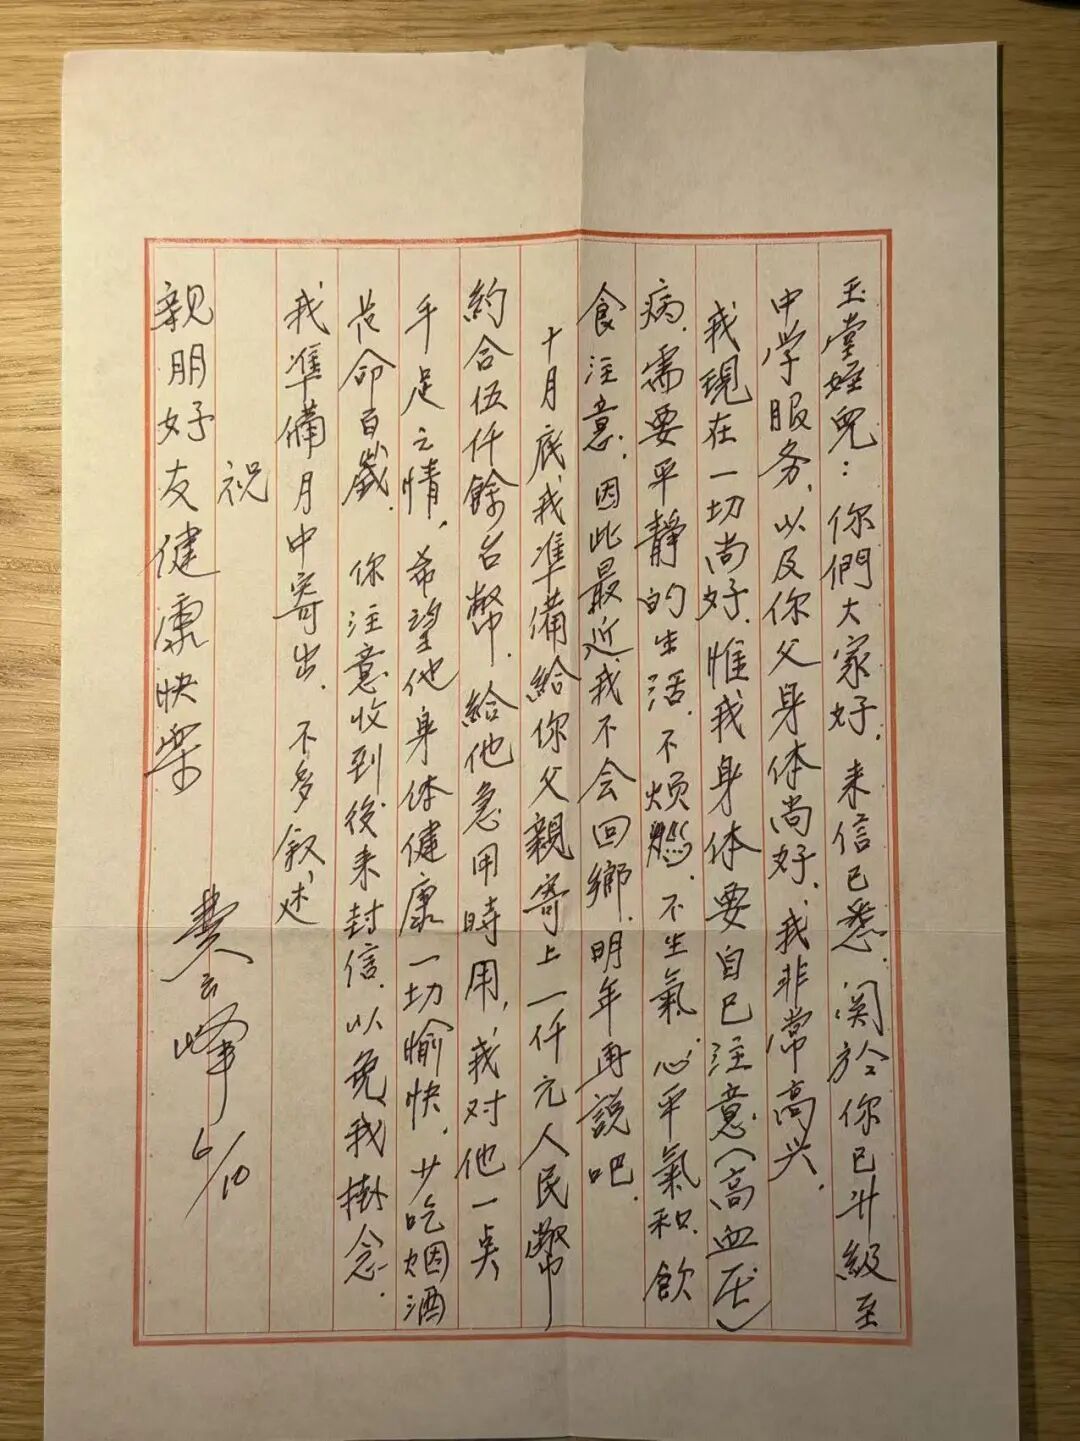 玉堂姪兒：你們大家好．来信已悉．関於你已升級至
中学服务、以及你父身体尚好、我非常高兴．
我現在一切尚好．惟我身体要自己注意（高血压）
病．需要平靜的生活．不烦燃．不生氣．心平氣和．飲
食注意．因此最近我不会回鄉．明年再説吧．
十月底我準備給你父親寄上一仟元人民幣
約合伍仟餘台幣．給他急用時用，我对他一点
手足之情，希望他身体健康一切愉快．少吃烟酒
长命百歲．你注意收到後来封信．以免我掛念．
我準備月中寄出．不多叙述
祝
親朋好友健康快樂
費云峰 6/10